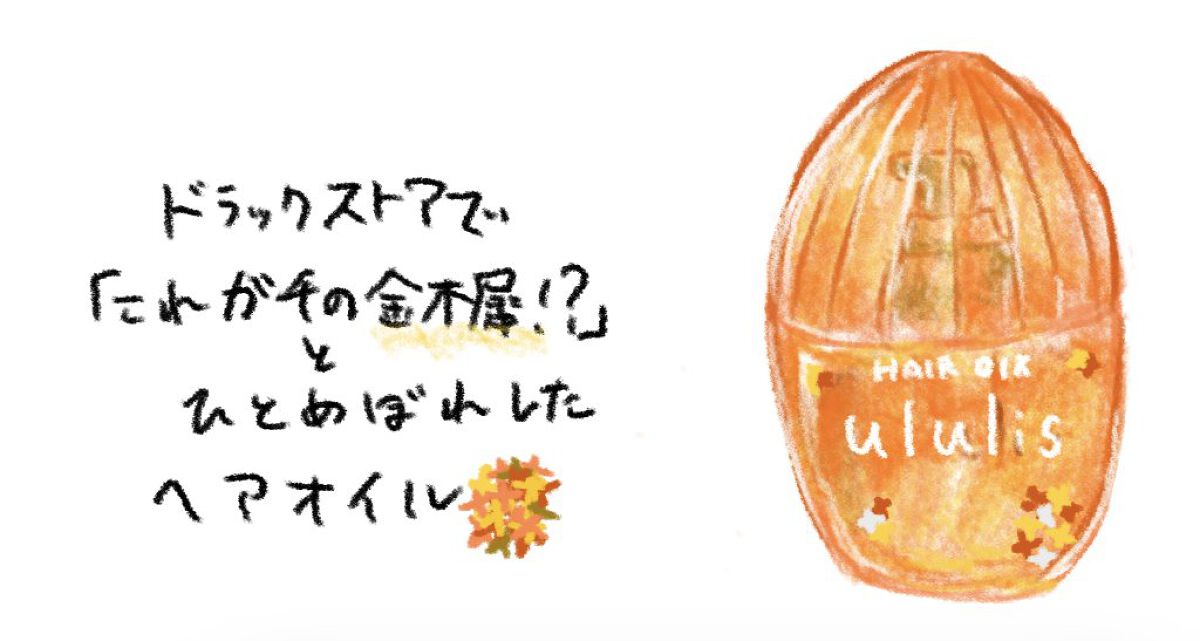 ドラックストアで
「これガチの金木犀!?」
と
ひとめぼれした
ヘアオイル
HAIR OIL
ululis